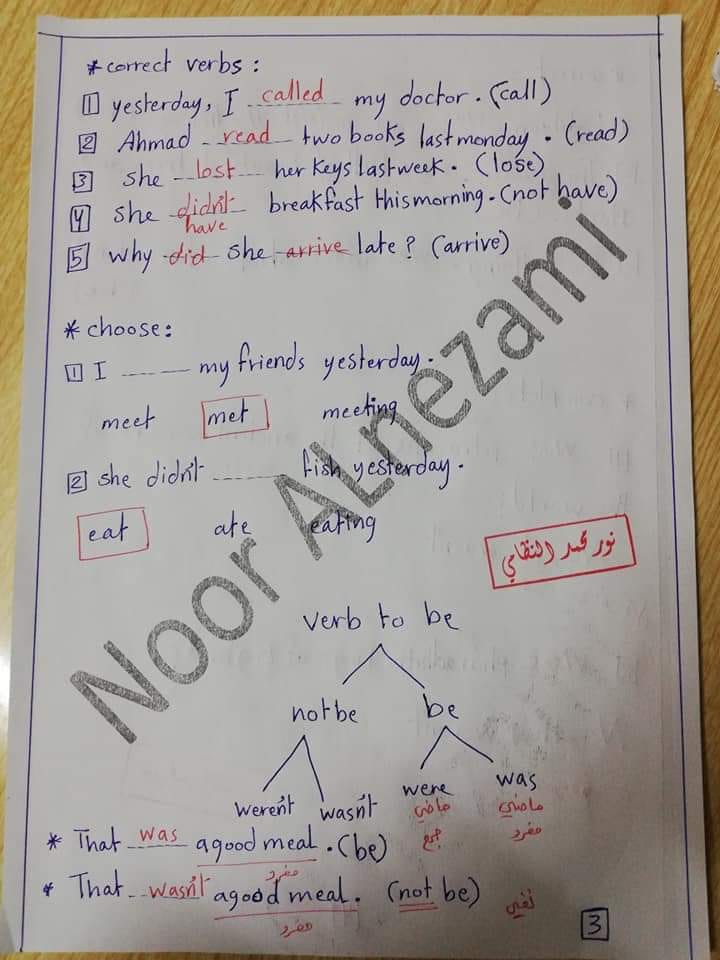 * correct verbs :
1 yesterday, I called my doctor. (call)
2 Ahmad read two books last monday. (read)
3 she lost her keys last week. (lose)
4 she didn't have breakfast this morning. (not have)
5 why did she arrive late? (arrive)
* choose:
1 I ______ my friends yesterday.
meet met meeting
2 she didn't ______ fish yesterday.
eat ate eating
نور محمد النظامي
Noor ALnezami
verb to be
not be be
weren't wasn't were was
ماضي ماضي
جمع مفرد
* That was a good meal. (be)
مفرد
* That wasn't a good meal. (not be) نفي
مفرد
3